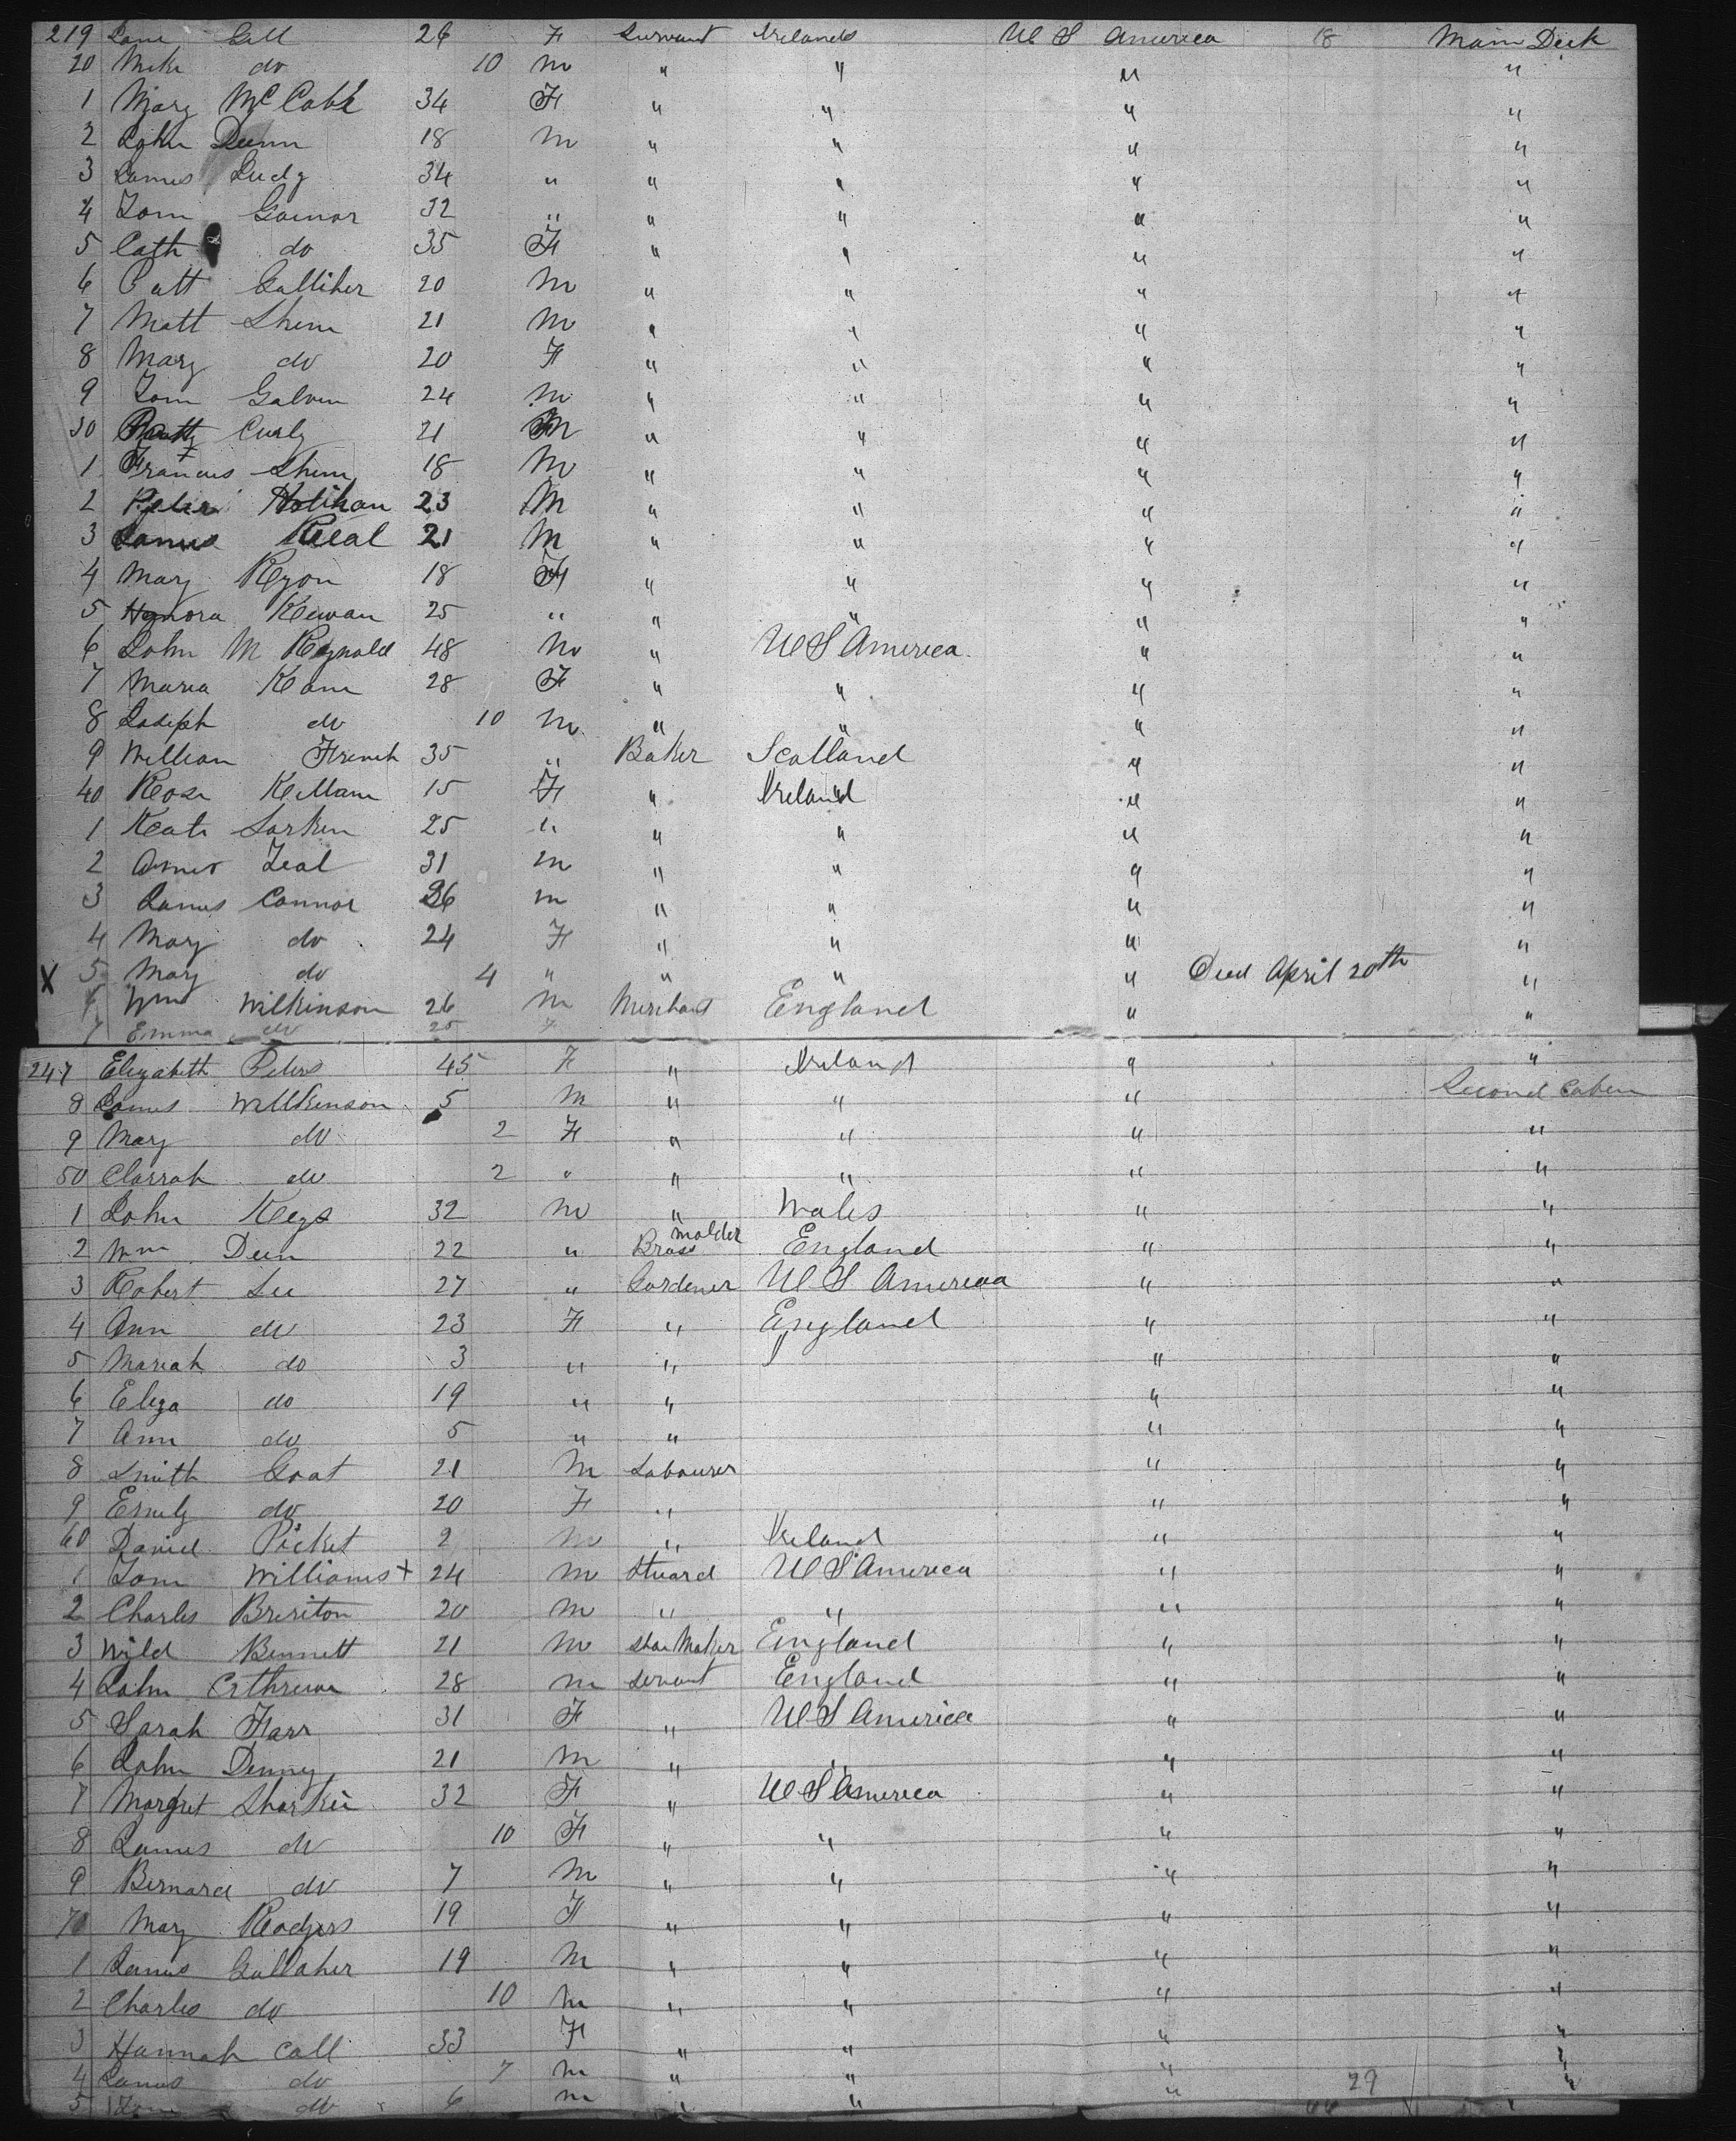 219 Jane Gill 26 F Servant Ireland U S America 18 Main Deck
20 Mike do 10 m " " " "
1 Mary McCabe 34 F " " " "
2 John Dunn 18 m " " " "
3 James 34 " " " " "
4 Tom Gainor 32 " " " " "
5 Cath do 35 F " " " "
6 Patt Galliher 20 m " " " "
7 Matt 21 m " " " "
8 Mary do 20 F " " " "
9 Tom Galvin 24 m " " " "
30 Curly 21 M " " " "
1 Francis 18 m " " " "
2 Peter Holihan 23 M " " " "
3 James 21 M " " " "
4 Mary Ryon 18 F " " " "
5 Honora 25 " " " " "
6 John M Reynold 48 m " U S America " "
7 Maria Kane 28 F " " " "
8 Joseph do 10 m " " " "
9 William French 35 " Baker Scotland " "
40 Rose 15 F " Ireland " "
1 Kate Larkin 25 " " " " "
2 31 m " " " "
3 James Connor 26 m " " " "
4 Mary do 24 F " " " "
X 5 Mary do 4 " " " " Died April 20th "
6 Wm Wilkinson 26 m Merchant England " "
7 Emma do 25 F
247 Elizabeth Peters 45 F " Ireland " "
8 James Willkinson 5 M " " " Second Cabin
9 Mary do 2 F " " " "
50 Clarrah do 2 " " " " "
1 John Keys 32 m " Wales " "
2 Wm Deen 22 " Brass molder England " "
3 Robert Lee 27 " Gardener U S America " "
4 Ann do 23 F " England " "
5 Mariah do 3 " " " " "
6 Eliza do 19 " " " "
7 Ann do 5 " " " "
8 Smith Goat 21 M Labourer " "
9 Emily do 20 F " " "
60 Daniel Picket 2 m " Ireland " "
1 Tom Williams + 24 m Stuard U S America " "
2 Charles Breriton 20 m " " " "
3 Wild Bennett 21 m Shoe Maker England " "
4 John 28 m Servant England " "
5 Sarah Farr 31 F " U S America " "
6 John Denny 21 m " " " "
7 Margret Sharkie 32 F " U S America " "
8 James do 10 F " " " "
9 Bernard do 7 M " " " "
70 Mary Rodgers 19 F " " " "
1 James Gallaher 19 M " " " "
2 Charles do 10 m " " " "
3 Hannah Call 33 F " " " "
4 James do 7 m " " " 29 "
5 do 6 m " " "